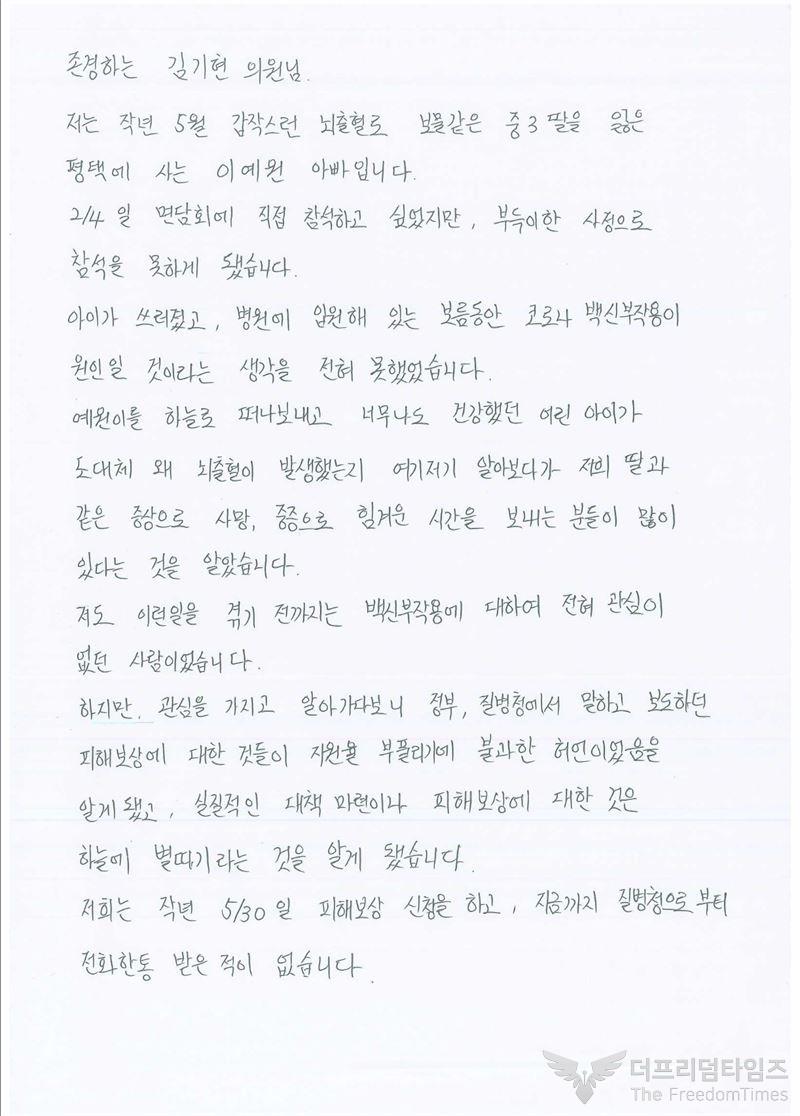 존경하는 김기현 의원님.
저는 작년 5월 갑작스런 뇌출혈로 보물같은 중3 딸을 잃은
평택에 사는 이예원 아빠입니다.
2/4 일 면담회에 직접 참석하고 싶었지만, 부득이한 사정으로
참석을 못하게 됐습니다.
아이가 쓰러졌고, 병원에 입원해 있는 보름동안 코로나 백신부작용이
원인일 것이라는 생각을 전혀 못했었습니다.
예원이를 하늘로 떠나보내고 너무나도 건강했던 어린 아이가
도대체 왜 뇌출혈이 발생했는지 여기저기 알아보다가 저희 딸과
같은 증상으로 사망, 중증으로 힘겨운 시간을 보내는 분들이 많이
있다는 것을 알았습니다.
저도 이런일을 겪기 전까지는 백신부작용에 대하여 전혀 관심이
없던 사람이었습니다.
하지만, 관심을 가지고 알아가다보니 정부, 질병청에서 말하고 보도하던
피해보상에 대한 것들이 지원율 부풀리기에 불과한 허언이었음을
알게 됐고, 실질적인 대책 마련이나 피해보상에 대한 것은
하늘에 별따기라는 것을 알게 됐습니다.
저희는 작년 5/30 일 피해보상 신청을 하고, 지금까지 질병청으로 부터
전화한통 받은 적이 없습니다.
더프리덤타임즈
The FreedomTimes